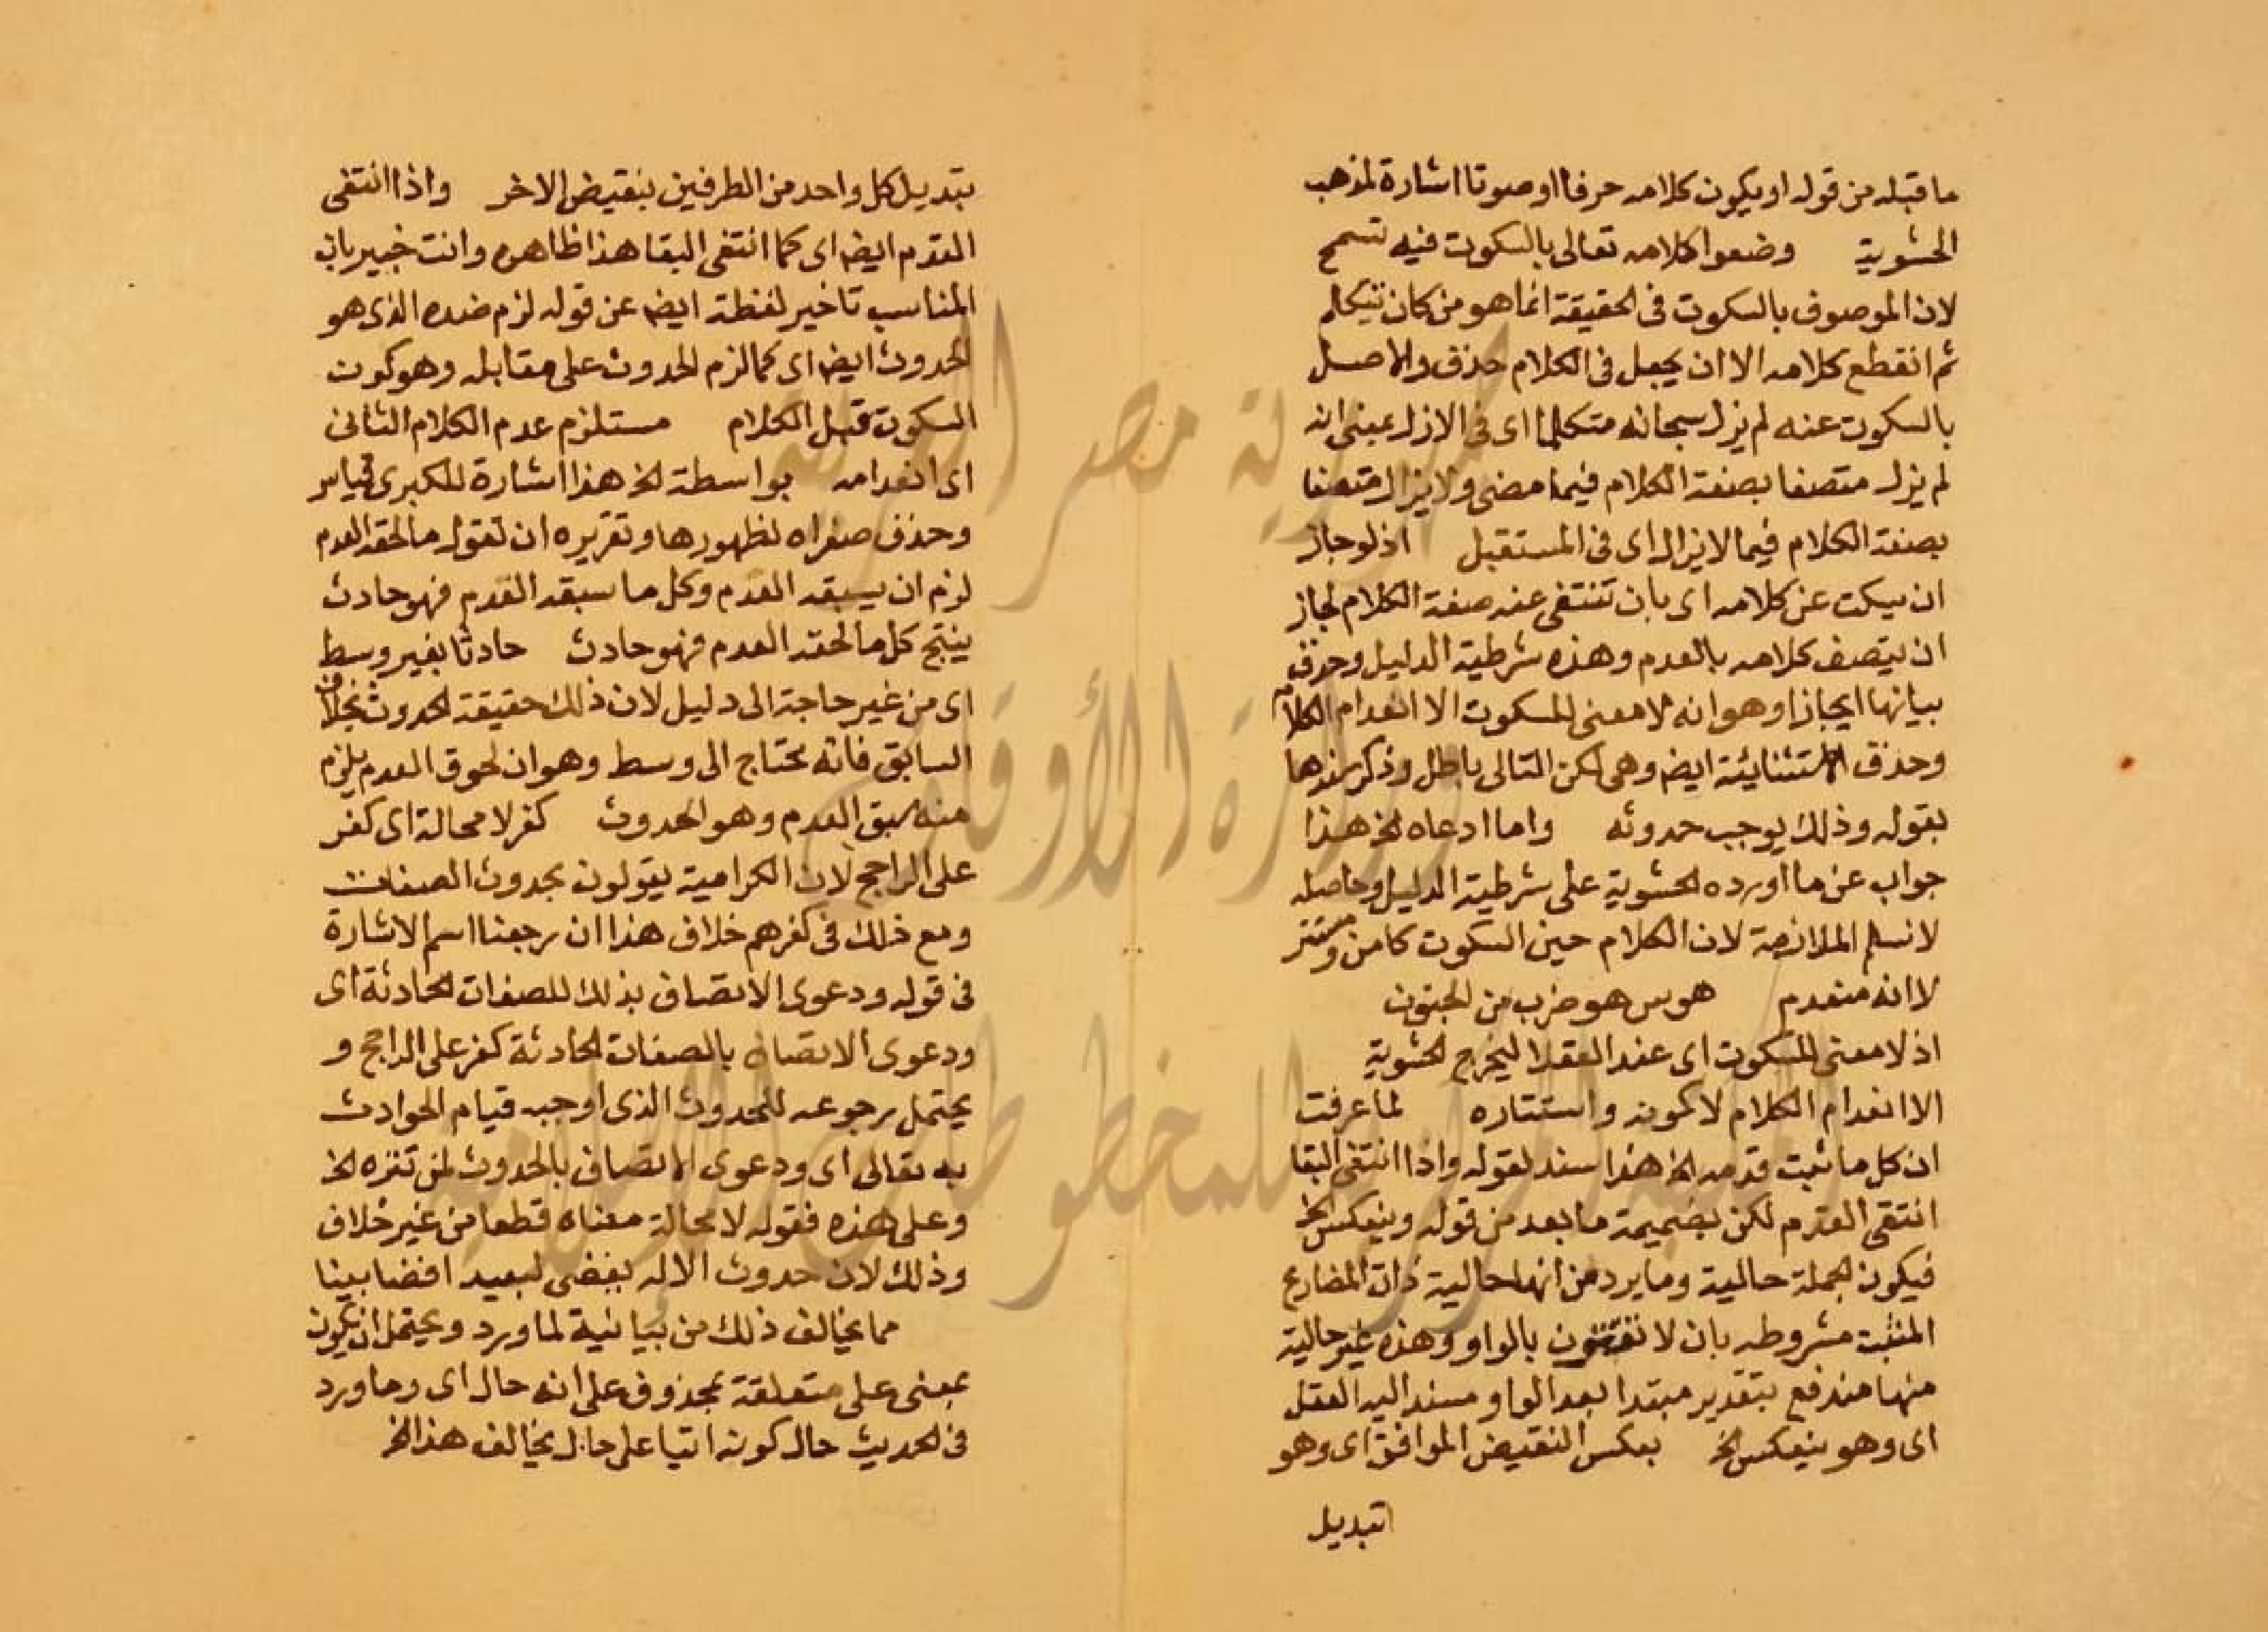 ما قبله من قوله او يكون كلامه حرفا او صوتا اشارة لمذهب
الحشوية وضعوا كلامه تعالى بالسكوت فيه تسمح
لان الموصوف بالسكوت فى الحقيقة انما هو من كان يتكلم
ثم انقطع كلامه الا ان يجعل فى الكلام حذف والاصل
بالسكوت عنه لم يزل سبحانه متكلما اى فى الازل بمعنى انه
لم يزل متصفا بصفة الكلام فيما مضى ولا يزال متصفا
بصفة الكلام فيما لا يزال اى فى المستقبل اذ لو جاز
ان يسكت عن كلامه اى بان تنتفى عنه صفة الكلام لجاز
ان يتصف كلامه بالعدم وهذه شرطية الدليل وحذف
بيانها ايجازا وهو انه لا معنى للسكوت الا انعدام الكلام
وحذف الاستثنائية ايض وهى لكن التالى باطل وذكر سندها
بقوله وذلك يوجب حدوثه واما ادعاه الخ هذا
جواب عن ما اورده الحشوية على شرطية الدليل وحاصله
لا نسلم الملازمة لان الكلام حين السكوت كامن ومستتر
لا انه منعدم هوس هو ضرب من الجنون
اذ لا معنى للسكوت اى عند العقلا ليخرج الحشوية
الا انعدام الكلام لا كمونه واستتاره لما عرفت
ان كل ما ثبت قدمه الخ هذا سند لقوله واذا انتفى البقا
انتفى القدم لكن بضميمة ما بعد من قوله وينعكس الخ
فيكون الجملة حالية وما يرد من انها حالية ذات المضارع
المثبت مشروطه بان لا تقترن بالواو وهذه غير حالية
منها مندفع بتقدير مبتدا بعد الواو ومسند اليه الفعل
اى وهو ينعكس الخ بعكس النقيض الموافق اى وهو
تبديل
بتبديل كل واحد من الطرفين بنقيض الاخر واذا انتفى
القدم ايض اى كما انتفى البقا هذا ظاهره وانت خبير بان
المناسب تاخير لفظة ايض عن قوله لزم ضده الذى هو
الحدوث ايض اى كما لزم الحدوث على مقابله وهو كون
السكوت قبل الكلام مستلزم عدم الكلام الثانى
اى انعدامه بواسطة الخ هذا اشارة للكبرى قياس
وحذف صغراه لظهورها وتقريره ان تقول ما لحقه العدم
لزم ان يسبقه العدم وكل ما سبقه العدم فهو حادث
ينتج كل ما لحقه العدم فهو حادث حادثا بغير وسط
اى من غير حاجة الى دليل لان ذلك حقيقة الحدوث بخلاف
السابق فانه يحتاج الى وسط وهو ان لحوق العدم يلزم
منه سبق العدم وهو الحدوث كفر لا محالة اى كفر
على الراجح لان الكرامية يقولون بحدوث الصفات
ومع ذلك فى كفرهم خلاف هذا ان رجعنا اسم الاشارة
فى قوله ودعوى الاتصاف بذلك للصفات الحادثة اى
ودعوى الاتصاف بالصفات الحادثة كفر على الراجح و
يحتمل رجوعه للحدوث الذى اوجبه قيام الحوادث
به تعالى اى ودعوى الاتصاف بالحدوث لمن تنزه الخ
وعلى هذه فقوله لا محالة معناه قطعا من غير خلاف
وذلك لان حدوث الاله يفضى لبعيد افضا بينا
مما يخالف ذلك من بيانية لما ورد ويحتمل ان يكون
بمعنى على متعلقة بمحذوف على انه حال اى وما ورد
فى الحديث حال كونه اتيا على حال يخالف هذا الخ